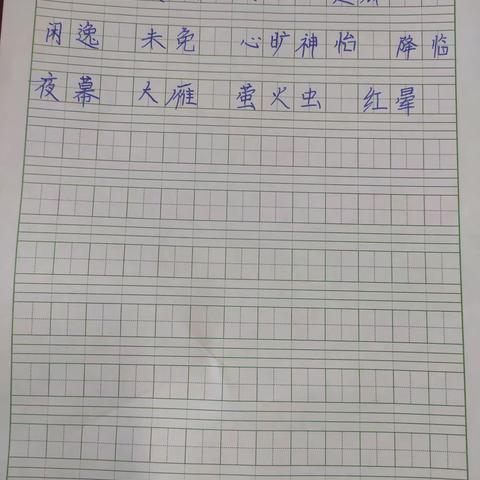 闲逸 未免 心旷神怡 降临
夜幕 大雁 萤火虫 红晕